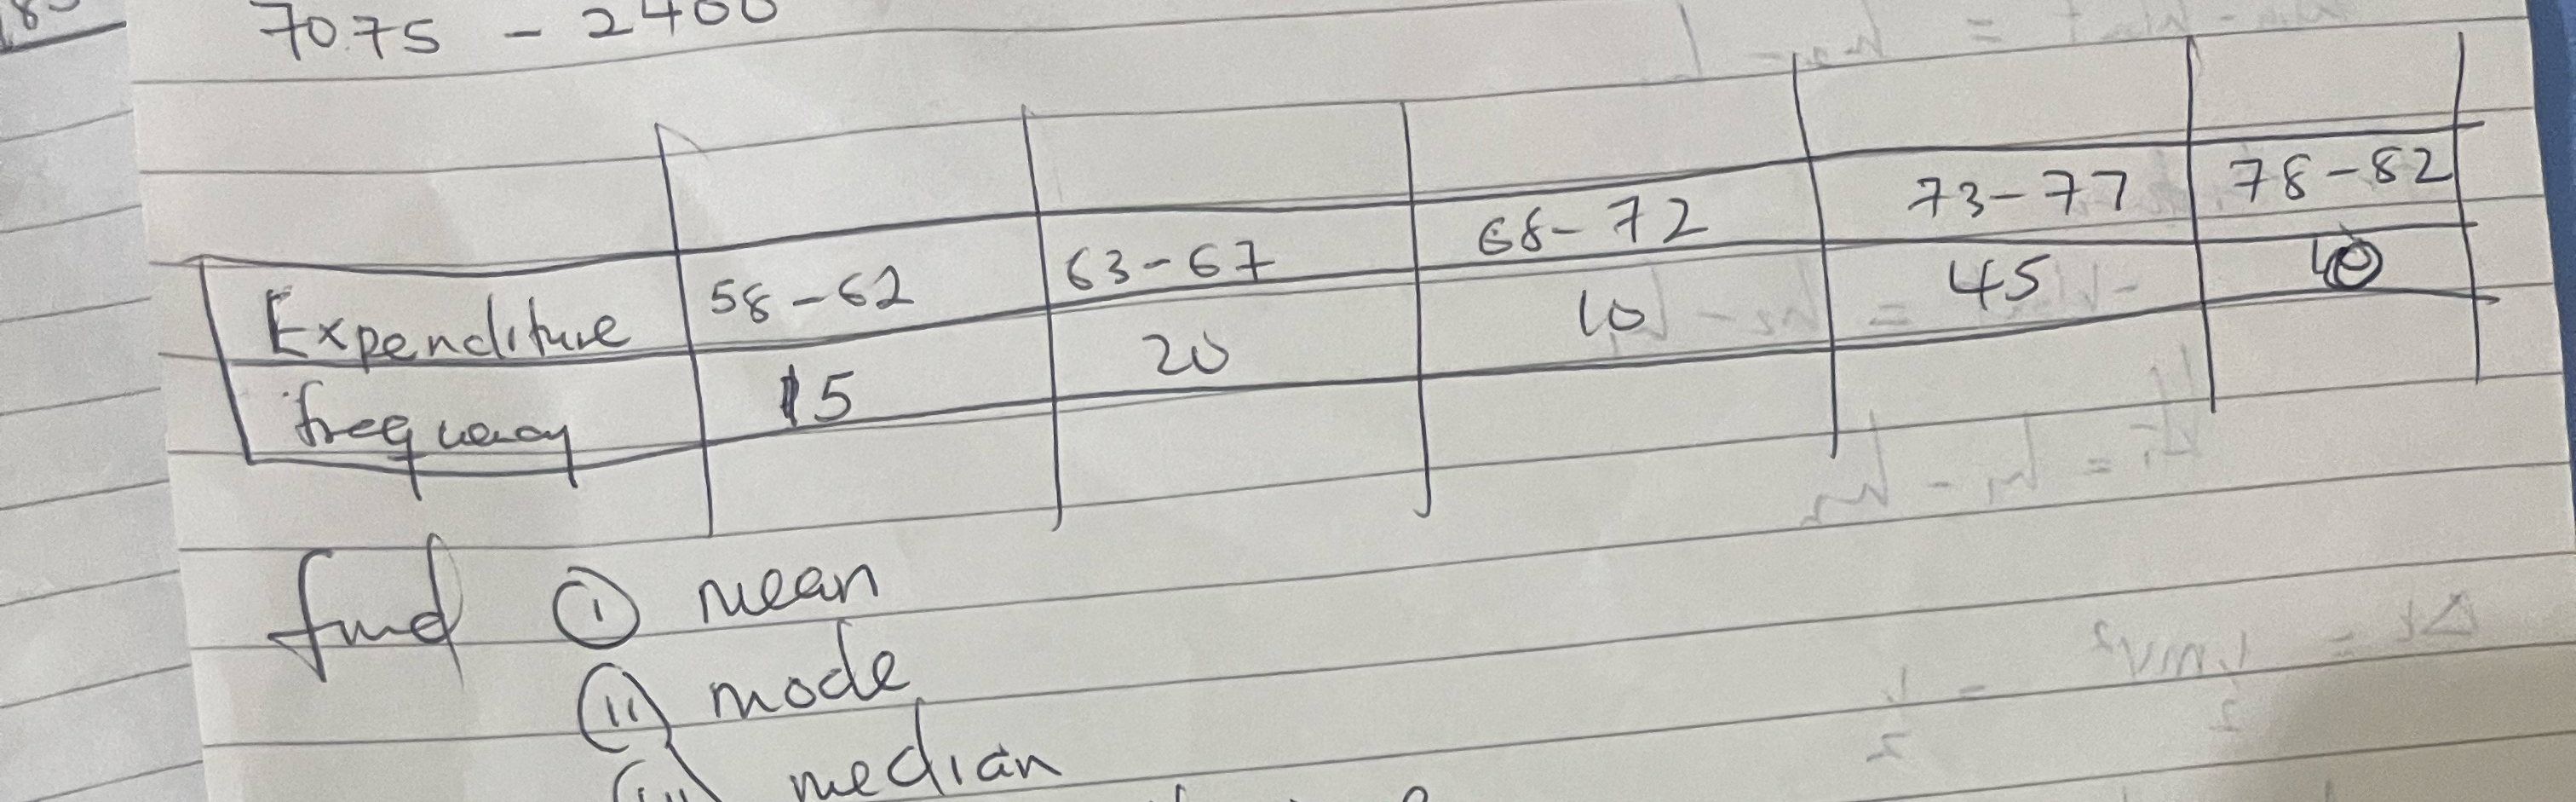 7075 - 2400
Expenditure 58-62 63-67 68-72 73-77 78-82
frequency 15 20 10 45
find (i) mean
(ii) mode
(iii) median